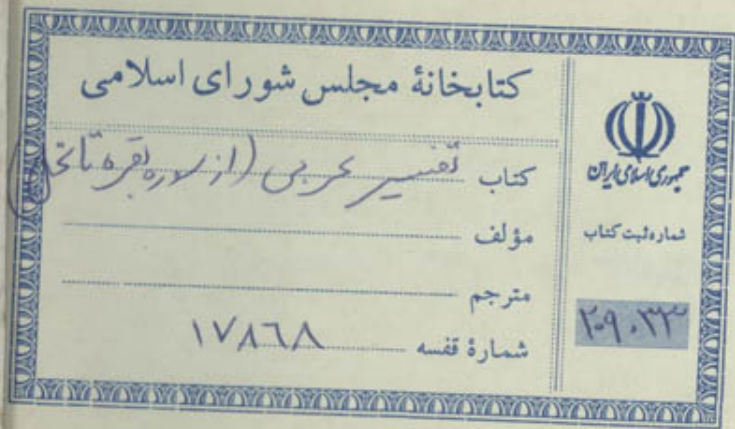 کتابخانهٔ مجلس شورای اسلامی
کتاب تفسیر عربی (از سوره بقره تا نحل)
مؤلف
مترجم
شمارهٔ قفسه ۱۷۸۶۸
جمهوری اسلامی ایران
شماره ثبت کتاب
۲۰۹۰۳۳